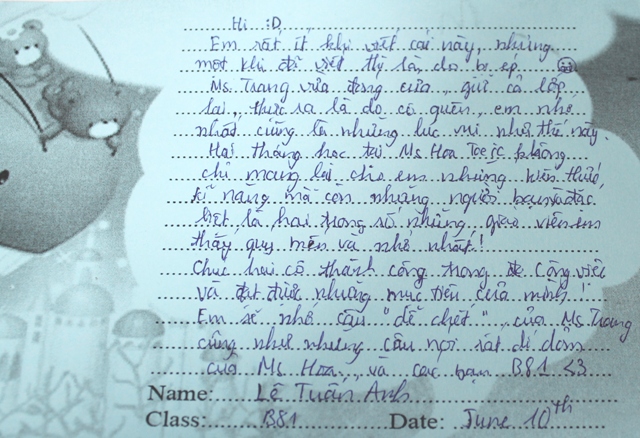 Hi :D
Em rất ít khi viết cái này, nhưng
một khi đã viết thì là do bị ép
Ms. Trang vừa đóng cửa, giữ cả lớp
lại, thực ra là do cô quên, em nhớ
nhất cũng là những lúc vui như thế này.
Hai tháng học tại Ms Hoa Toeic không
chỉ mang lại cho em những kiến thức,
kĩ năng mà còn những người bạn và đặc
biệt, là hai trong số những giáo viên em
thấy quý mến và nhớ nhất!
Chúc hai cô thành công trong công việc
và đạt được những mục tiêu của mình!
Em sẽ nhớ câu "dễ chết" của Ms. Trang
cũng như những câu nói rất dí dỏm
của Ms Hoa, và các bạn B81 <3
Name: Lê Tuấn Anh
Class: B81 Date: June 10th